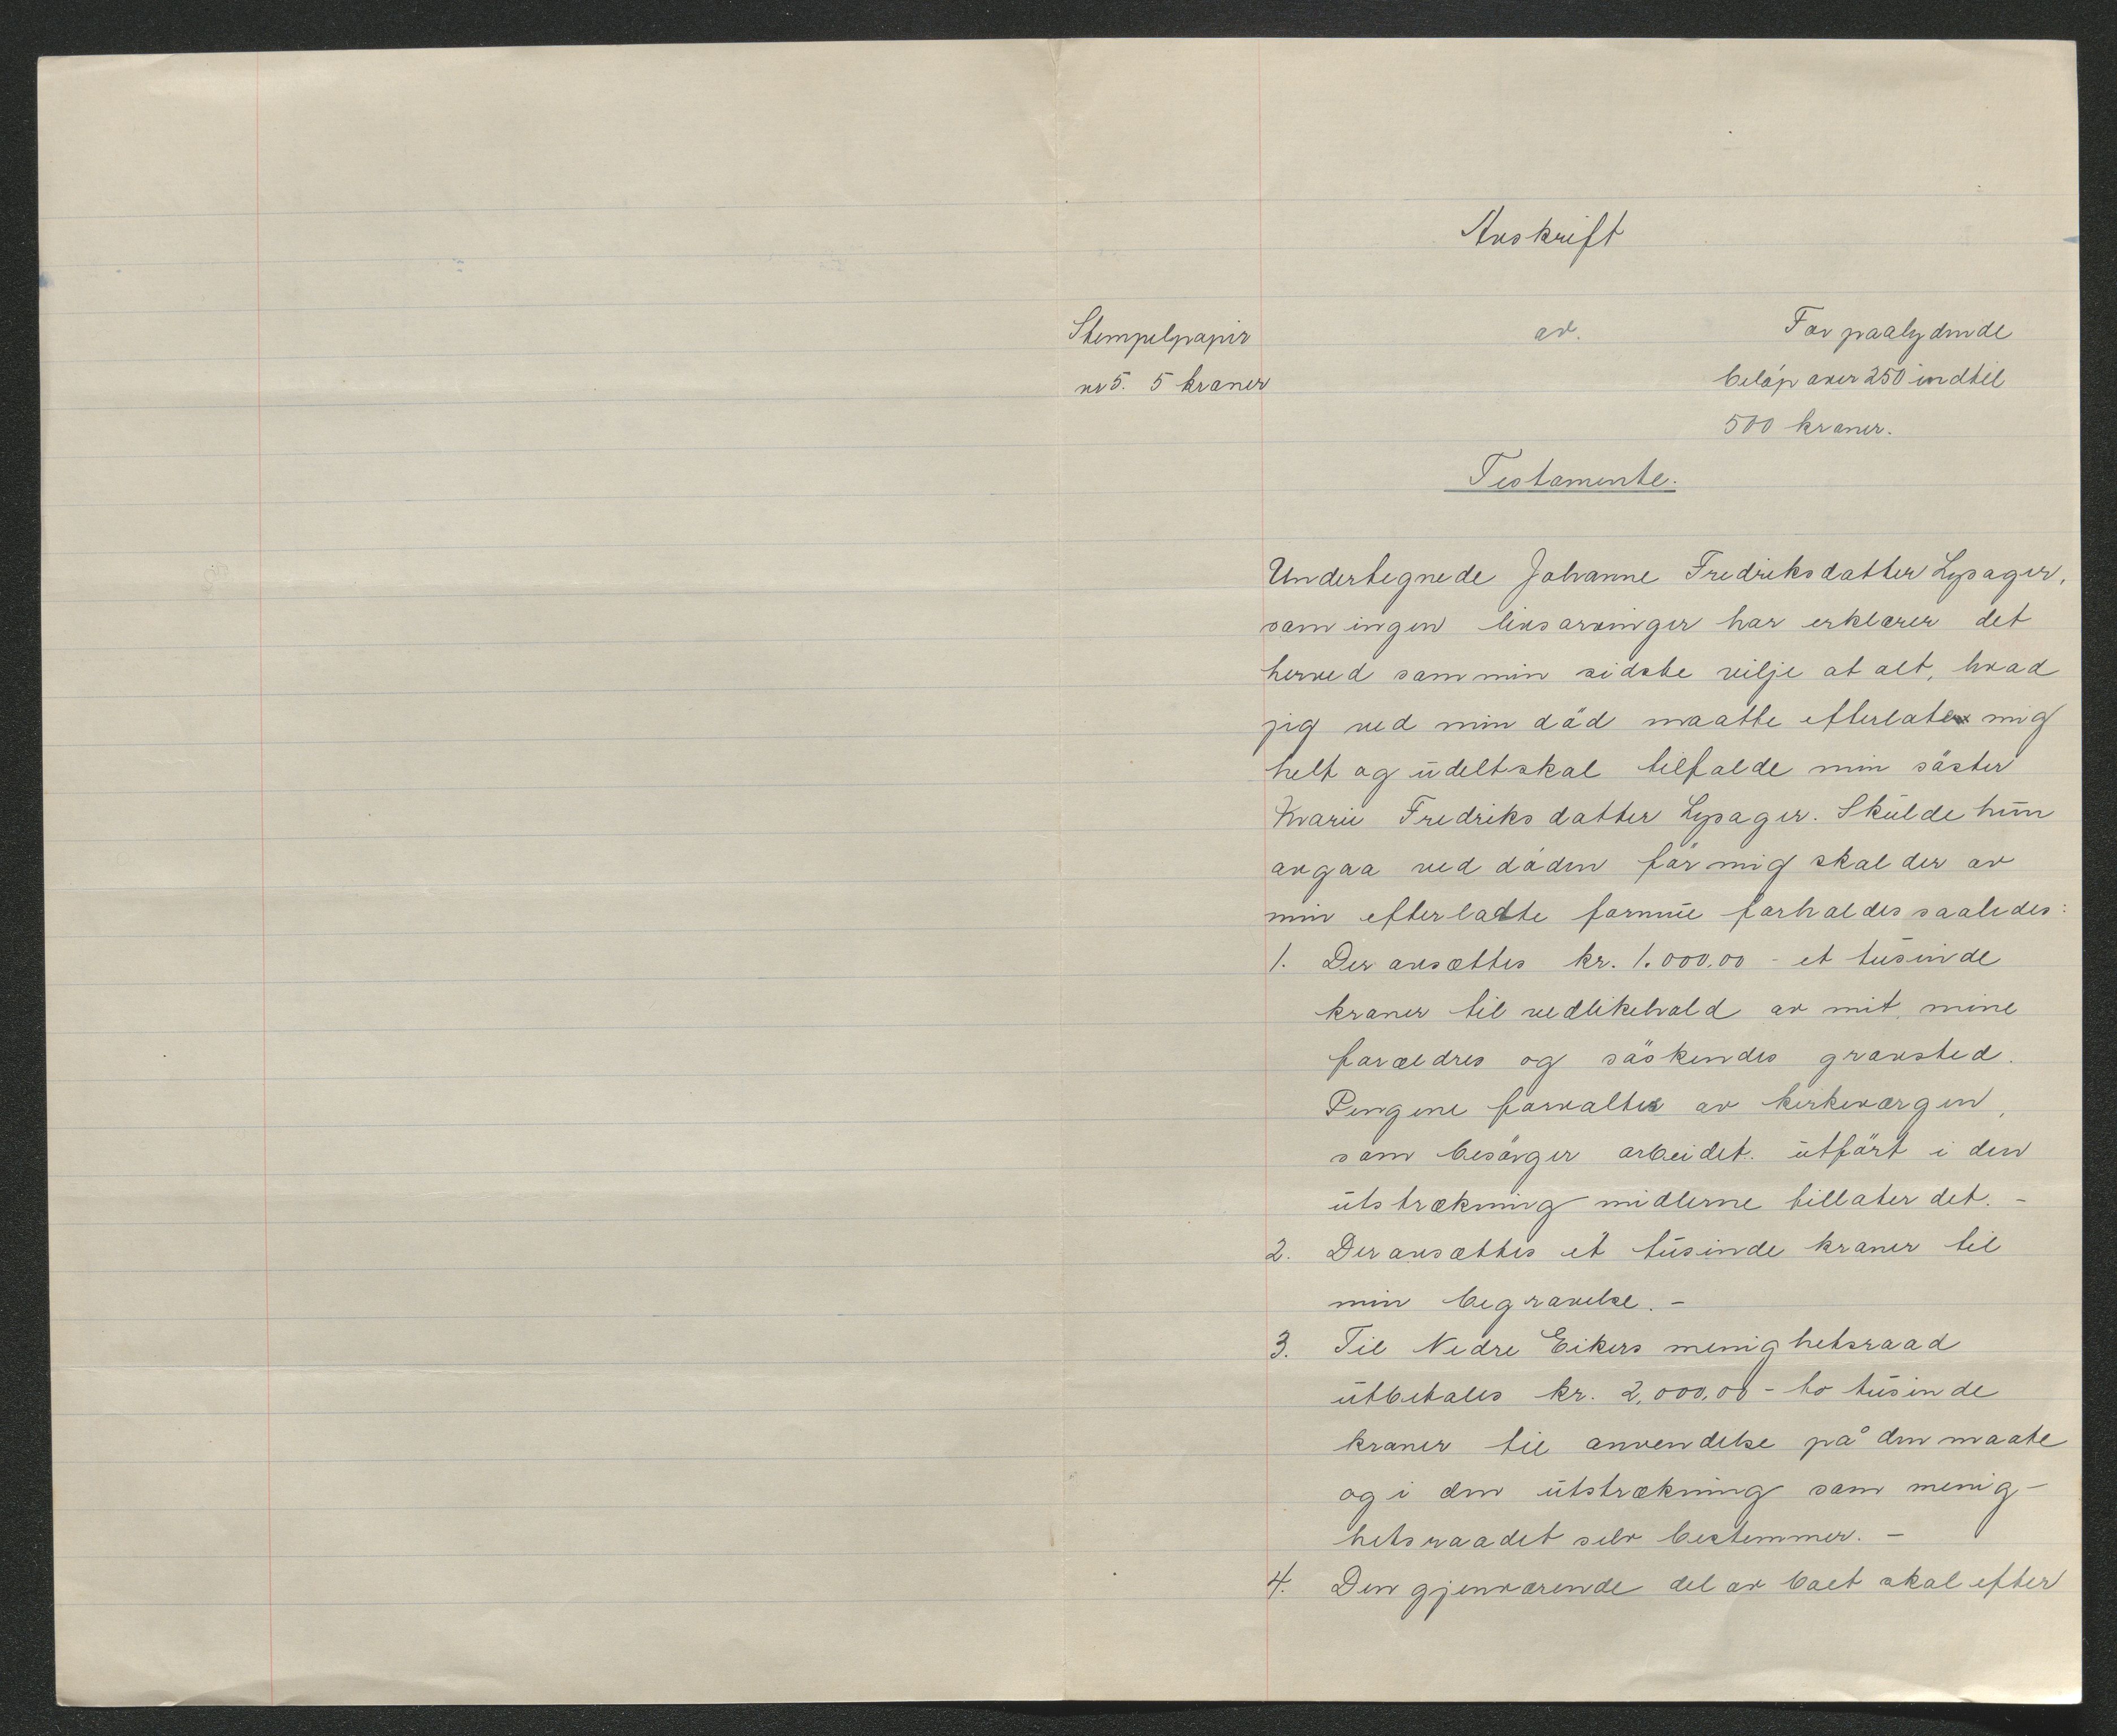 Avskrift
Stempelpapir av. For paalydende
nr 5. 5 kroner beløp over 250 indtil
500 kroner.
Testamente.
Undertegnede Johanne Fredriksdatter Lysager,
som ingen livsarvinger har erklærer det
herved som min sidste vilje at alt, hvad
jeg ved min död maatte efterlate mig
helt og udelt skal tilfalde min söster
Marie Fredriksdatter Lysager. Skulde hun
avgaa ved döden för mig skal der av
min efterladte formue forholdes saaledes:
1. Der avsættes kr. 1.000,00 - et tusinde
kroner til vedlikehold av mit, mine
forældres og söskendes gravsted.
Pengene forvaltes av kirkeværgen,
som besörger arbeidet utfört i den
utstrækning midlerne tillater det. -
2. Der avsættes et tusinde kroner til
min begravelse. -
3. Til Nedre Eikers menighetsraad
utbetales kr. 2,000,00 - to tusinde
kroner til anvendelse på den maate
og i den utstrækning som menig-
hetsraadet selv bestemmer. -
4. Den gjenværende del av boet skal efter